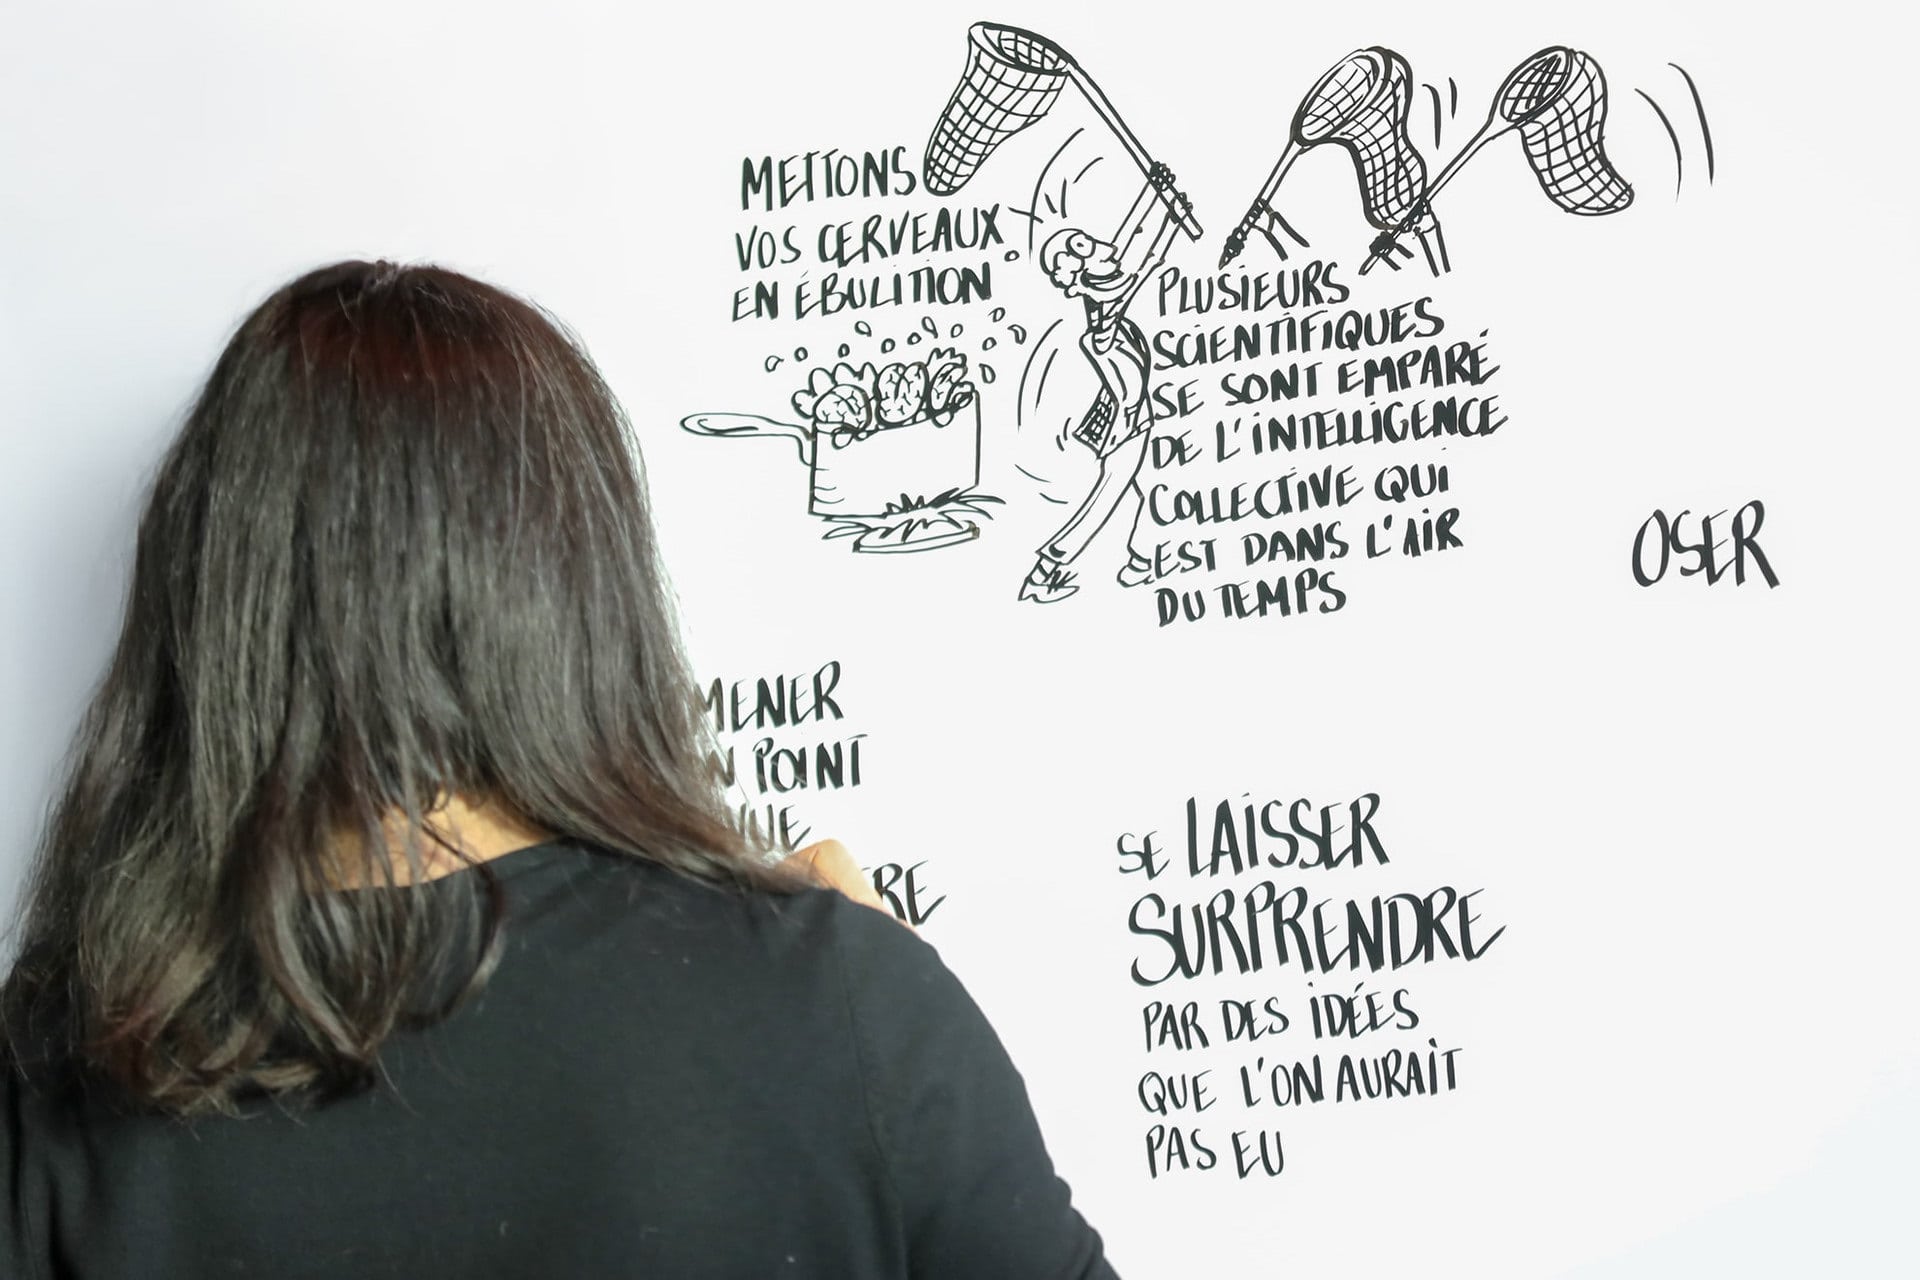 METTONS
VOS CERVEAUX
EN ÉBULITION
PLUSIEURS
SCIENTIFIQUES
SE SONT EMPARÉ
DE L'INTELLIGENCE
COLLECTIVE QUI
EST DANS L'AIR
DU TEMPS
OSER
MENER
POINT
SE LAISSER
SURPRENDRE
PAR DES IDÉES
QUE L'ON AURAIT
PAS EU